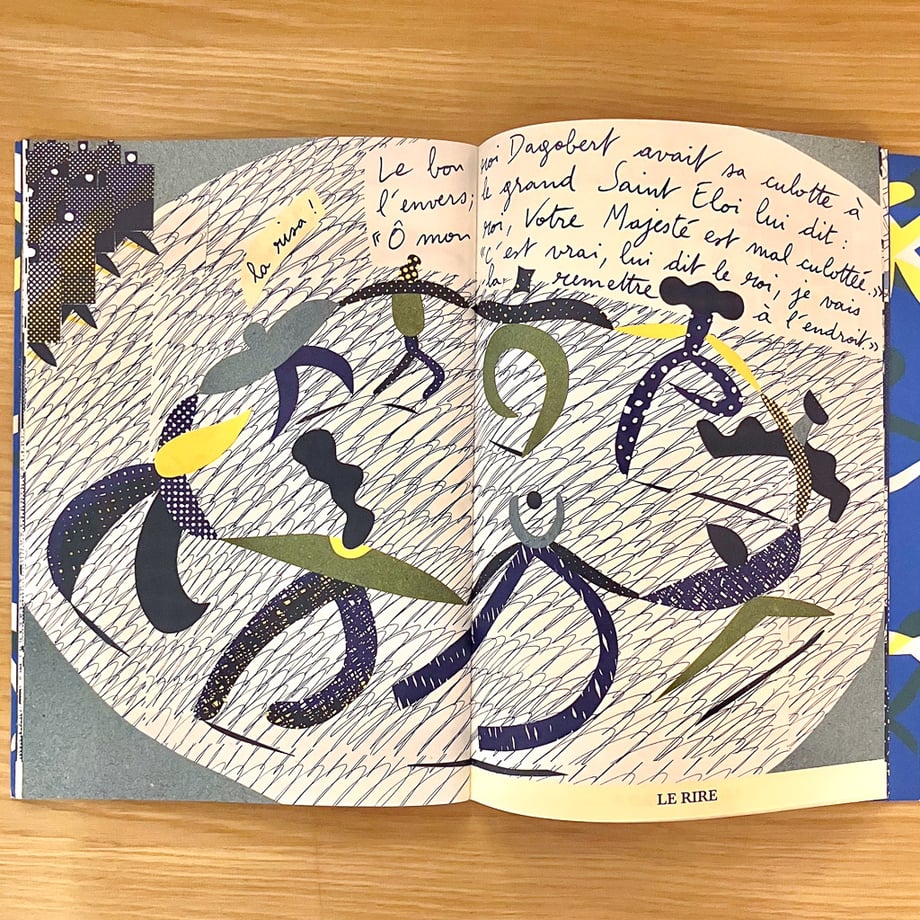 Le bon roi Dagobert avait sa culotte à
l'envers; le grand Saint Eloi lui dit:
« Ô mon roi, Votre Majesté est mal culottée.»
"C'est vrai, lui dit le roi, je vais
la remettre
à l'endroit.»
la risa !
LE RIRE